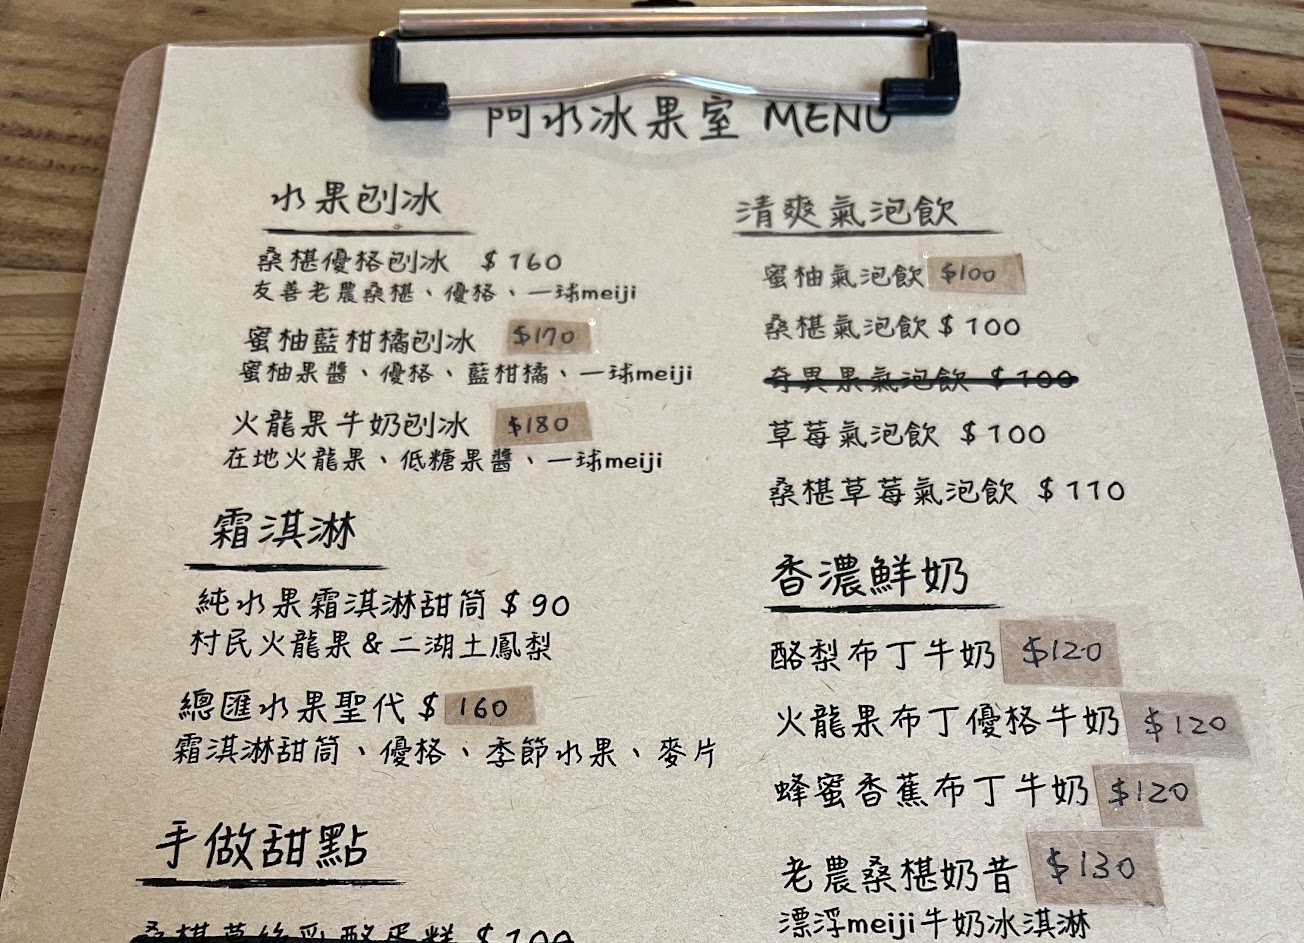 阿水冰果室 MENU
水果刨冰
桑椹優格刨冰 $160
友善老農桑椹、優格、一球meiji
蜜柚藍柑橘刨冰 $170
蜜柚果醬、優格、藍柑橘、一球meiji
火龍果牛奶刨冰 $180
在地火龍果、低糖果醬、一球meiji
霜淇淋
純水果霜淇淋甜筒 $90
村民火龍果&二湖土鳳梨
總匯水果聖代 $160
霜淇淋甜筒、優格、季節水果、麥片
手做甜點
桑椹蔓絲乳酪蛋糕 $100
清爽氣泡飲
蜜柚氣泡飲 $100
桑椹氣泡飲 $100
奇異果氣泡飲 $100
草莓氣泡飲 $100
桑椹草莓氣泡飲 $110
香濃鮮奶
酪梨布丁牛奶 $120
火龍果布丁優格牛奶 $120
蜂蜜香蕉布丁牛奶 $120
老農桑椹奶昔 $130
漂浮meiji牛奶冰淇淋